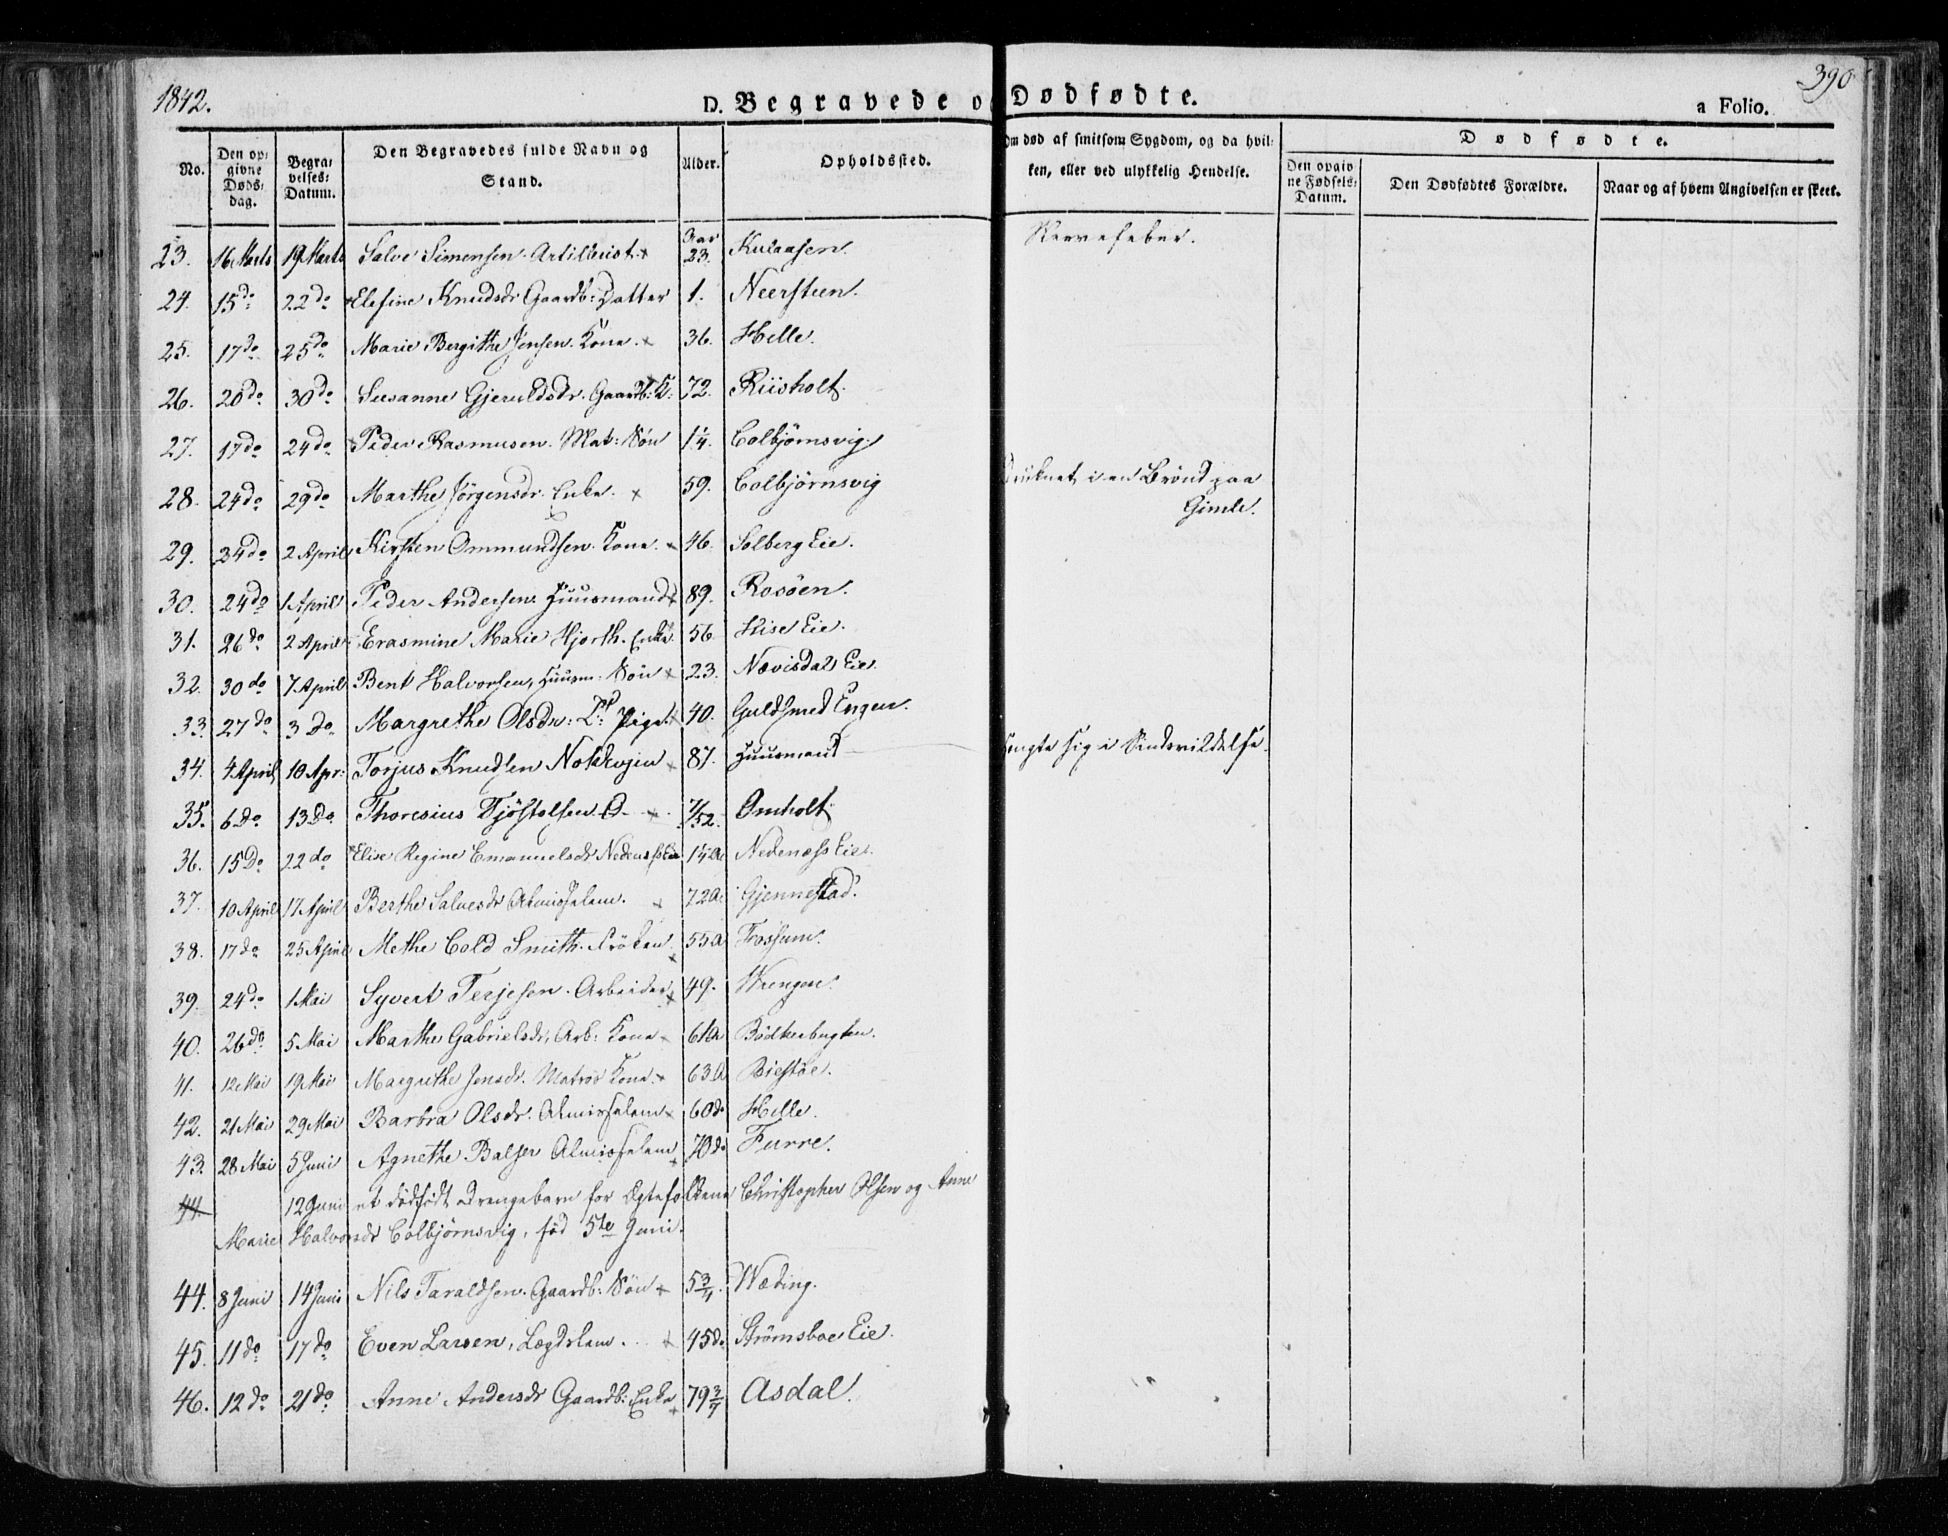 1842.
390
D. Begravede o Dødfødte.
a Folio.
No.
Den op: givne Døds: dag.
Begra: velses: Datum.
Den Begravedes fulde Navn og Stand.
Alder.
Opholdssted.
Om død af smitsom Sygdom, og da hvil: ken, eller ved ulykkelig Hendelse.
Dødfødte.
Den opgiv ne Fødsels: Datum.
Den Dødfødtes Forældre.
Naar og af hvem Angivelsen er skeet.
23. 16 Marts 19 Marts Salve Simensen Artillerist Aar 23. Kulaasen. Nervefeber.
24. 15 do 22 do Elefine Knudsdr Gaardb: Datter 1. Neersteen.
25. 17 do 25 do Marie Bergithe Jensen. Kone. 36. Helle.
26. 20 do 30 do Susanne Gjeruldsdr. Gaardb: K: 72. Riisholt.
27. 17 do 24 do Peder Rasmusen. Mat: Søn 1¼. Colbjørnsvig.
28. 24 do 29 do Marthe Jørgensdr. Enke. 59. Colbjørnsvig druknet i en Brønd paa
Gimle.
29. 24 do 2 April Kirsten Ommundsen. Kone. 46. Solberg Eie.
30. 24 do 1 April Peder Andersen Huusmand 89. Rosøen.
31. 26 do 2 April Erasmine Marie Hjorth. Enke 56. Hise Eie.
32. 30 do 7 April Bent Halvorsen, Huusm: Søn 23. Nævisdal Eie
33. 27 do 3 do Margrethe Olsdr: Pige 40. Guldsmed Engen.
34. 4 April 10 Apr: Torjus Knudsen 87. Huusmand hængte sig i Sindsvildelse.
35. 6 do 13 do Thoresius Tjøstolsen 7/52. Omholt
36. 15 do 22 do Elise Regine Emanuelsdr 1¼ Aa Nedenæss Eie.
37. 10 April 17 April Berthe Salvesdr Almisselem. 72 a. Gjennestad.
38. 17 do 25 April Methe Cold Smith. Frøken. 55 a Frossum.
39. 24 do 1 Mai Syvert Terjesen. Arbeider 49. Wrengen.
40. 26 do 5 Mai Marthe Gabrielsdr, Arb: Kone 61 a Bødkerbugten.
41. 12 Mai 19 Mai Margrethe Jensdr. Matros Kone. 63 a Biestøe.
42. 21 Mai 29 Mai Barbra Olsdr. Almisselem 60 do Helle.
43. 28 Mai 5 Juni Agnethe Balser Almisselem 70 do Furre.
44 12 Juni et dødfødt Drengebarn for Ægtefolkene Christopher Olsen og Anne
Marie Halvorsdr Colbjørnsvig, fød 5te Juni.
44. 8 Juni 14 Juni Nils Taraldsen. Gaardb: Søn 5¾. Wæding.
45. 11 do 17 do Even Larsen, Lægdslem. 45 do Strømsboe Eie.
46. 12 do 21 do Anne Andersdr Gaardb: Enke 79¾ Asdal.